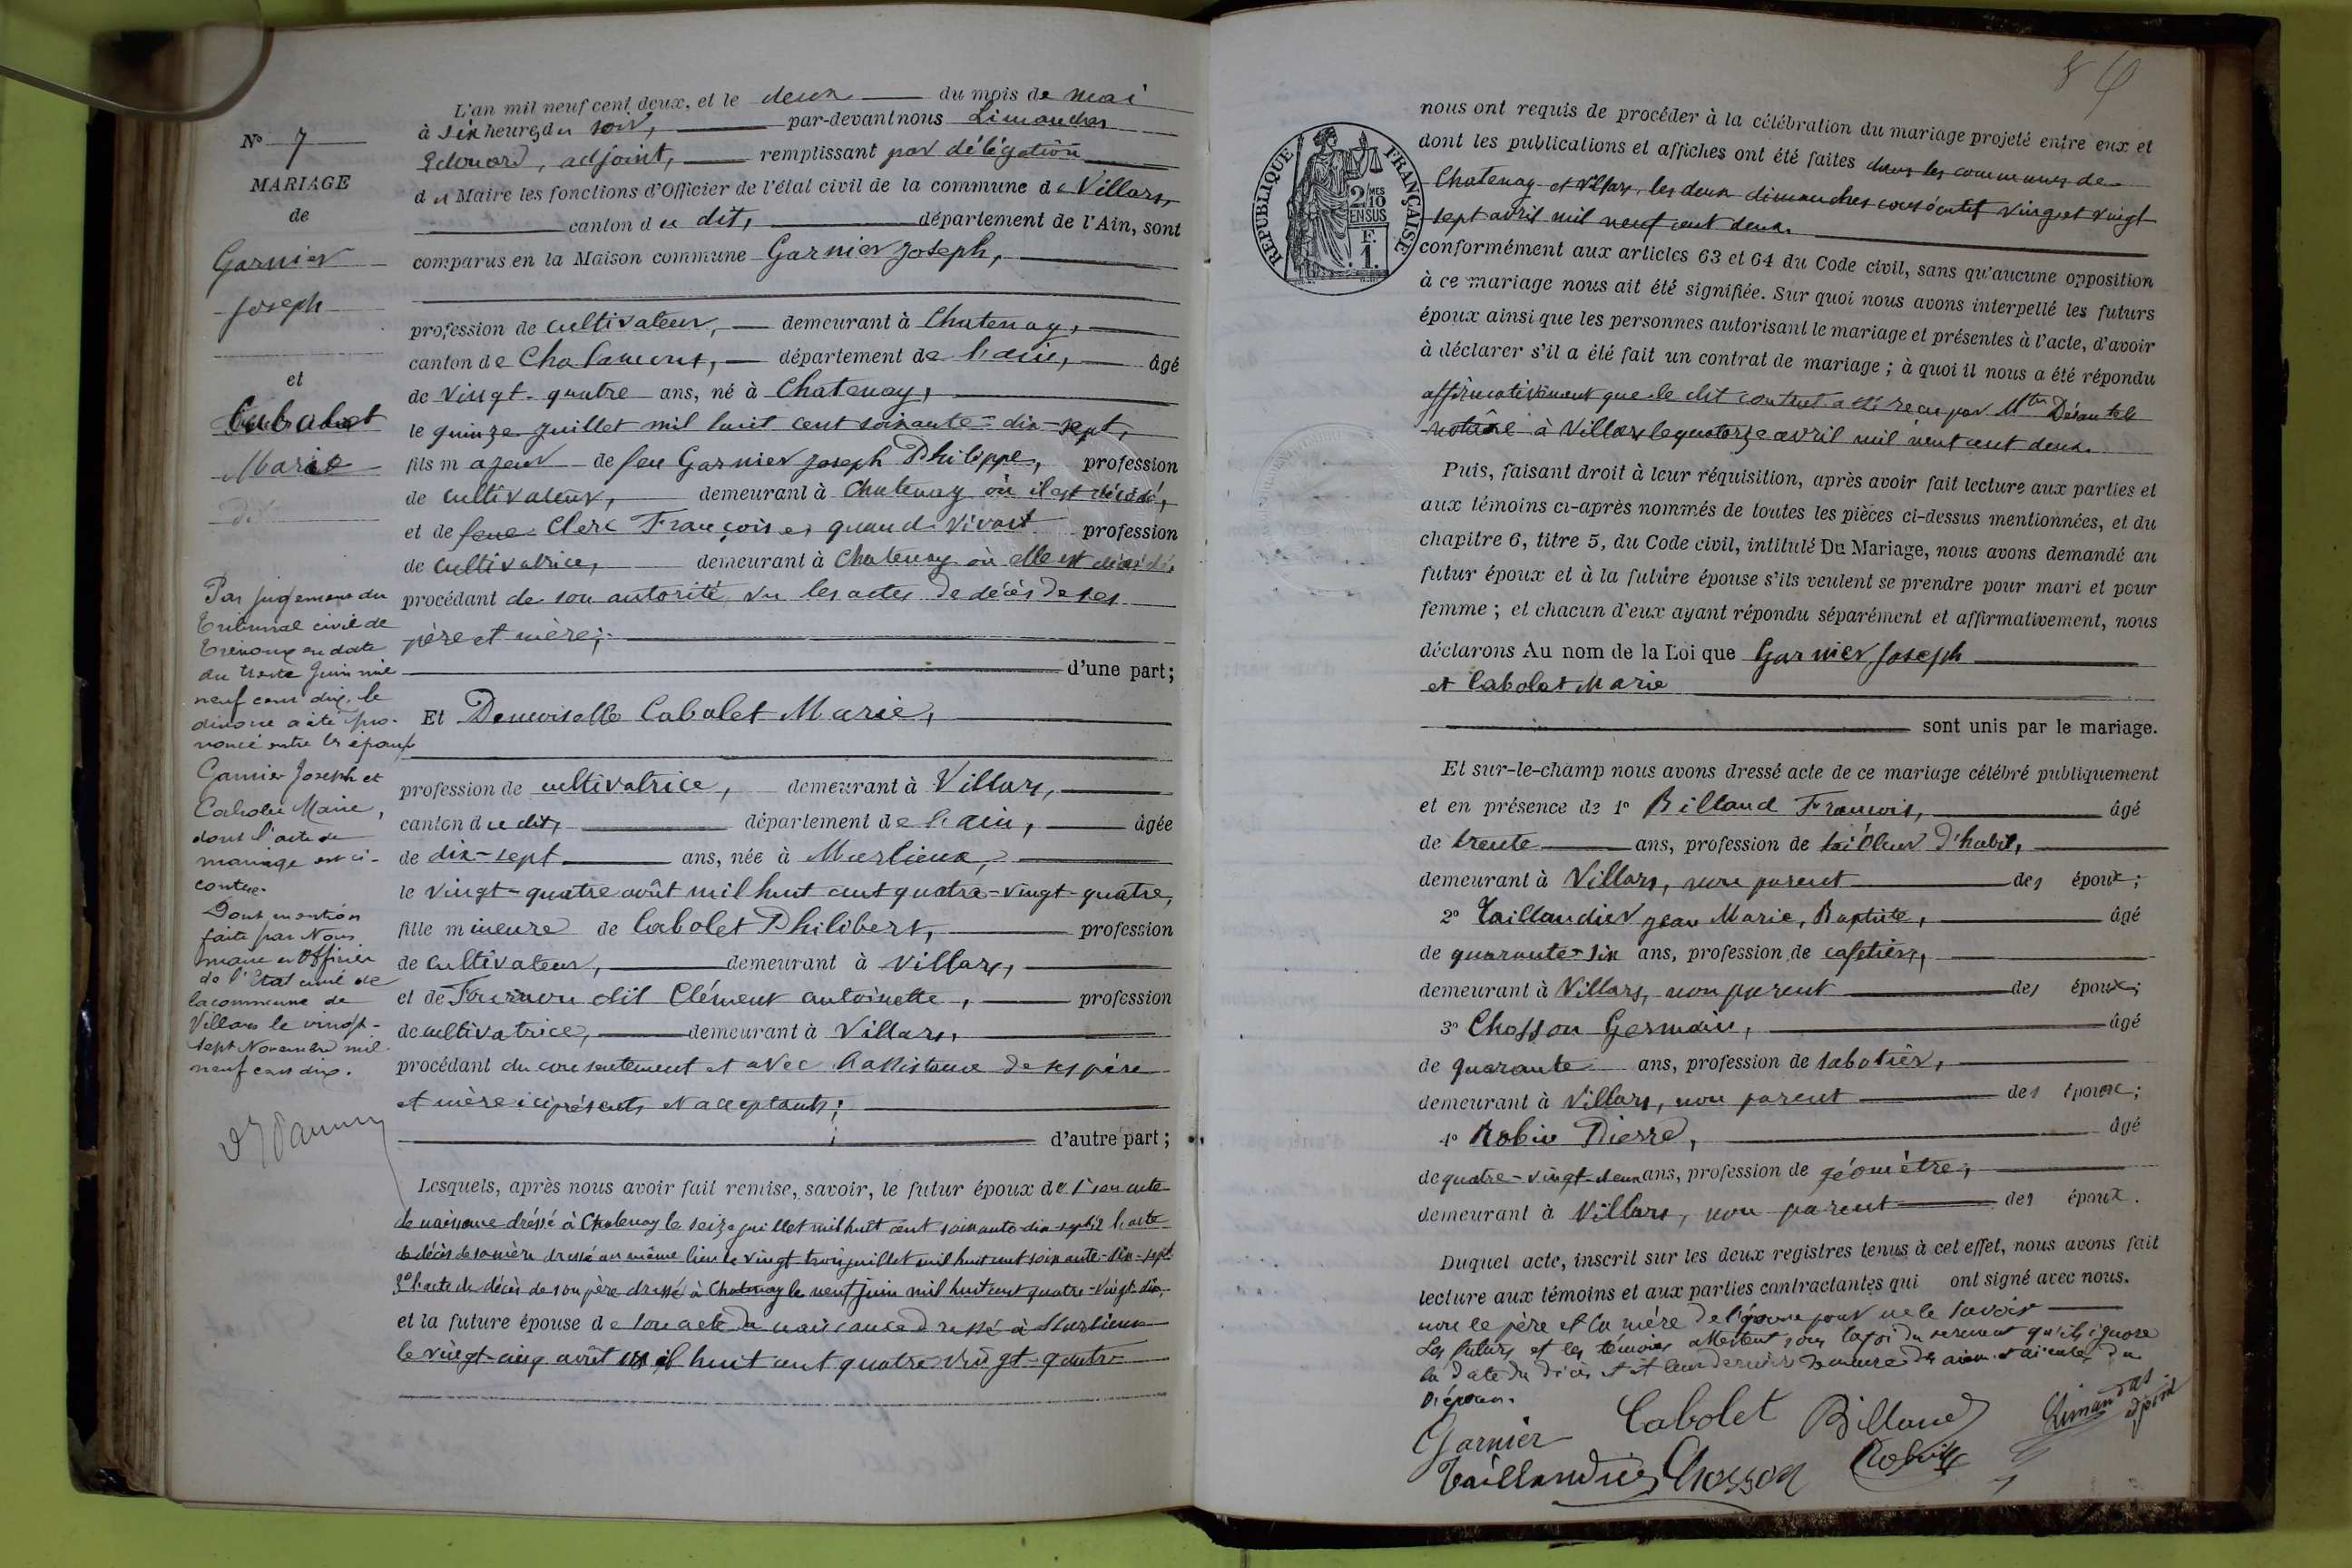 N° 7
MARIAGE
de
Garnier
Joseph
et
Cabolet
Marie
Par jugement du
Tribunal civil de
Trévoux en date
du trente Juin mil
neuf cent dix, le
divorce a été pro-
noncé entre les époux
Garnier Joseph et
Cabolet Marie,
dont l'acte de
mariage est ci-
contre.
Dont mention
faite par Nous
maire et Officier
de l'Etat civil de
la commune de
Villars le vingt-
sept Novembre mil
neuf cent dix.
L'an mil neuf cent deux, et le deux du mois de mai
à six heures du soir, par-devant nous Limandas
Edouard, adjoint, remplissant par délégation
du Maire les fonctions d'Officier de l'état civil de la commune de Villars,
canton du dit, département de l'Ain, sont
comparus en la Maison commune Garnier Joseph,
profession de cultivateur, demeurant à Chatenay,
canton de Chalamont, département de l'ain, âgé
de vingt-quatre ans, né à Chatenay,
le quinze juillet mil huit cent soixante-dix-sept,
fils majeur de feu Garnier Joseph Philippe, profession
de cultivateur, demeurant à Chatenay où il est décédé,
et de feue Clerc Françoise, quand vivait profession
de cultivatrice, demeurant à Chatenay où elle est décédée
procédant de son autorité vu les actes de décès de ses
père et mère;
d'une part;
Et Demoiselle Cabolet Marie,
profession de cultivatrice, demeurant à Villars,
canton du dit, département de l'ain, âgée
de dix-sept ans, née à Marlieux,
le vingt-quatre août mil huit cent quatre-vingt-quatre,
fille mineure de Cabolet Philibert, profession
de cultivateur, demeurant à Villars,
et de Fournon dit Clément antoinette, profession
de cultivatrice, demeurant à Villars,
procédant du consentement et avec l'assistance de ses père
et mère ici présents et acceptants;
d'autre part;
Lesquels, après nous avoir fait remise, savoir, le futur époux de 1° son acte
de naissance dréssé à Chatenay le seize juillet mil huit cent soixante-dix-sept 2° l'acte
de décès de sa mère dressé au même lieu le vingt trois juillet mil huit cent soixante-dix-sept
3° l'acte de décès de son père dressé à Chatenay le neuf juin mil huit cent quatre-vingt-dix,
et la future épouse de son acte de naissance dressé à Marlieux
le vingt-cinq août mil huit cent quatre vingt-quatre
84
RÉPUBLIQUE FRANÇAISE
2/10 MES
EN SUS
F.
1.
nous ont requis de procéder à la célébration du mariage projeté entre eux et
dont les publications et affiches ont été faites dans les communes de
Chatenay et Villars, les deux dimanches consécutifs vingt et vingt
sept avril mil neuf cent deux.
conformément aux articles 63 et 64 du Code civil, sans qu'aucune opposition
à ce mariage nous ait été signifiée. Sur quoi nous avons interpellé les futurs
époux ainsi que les personnes autorisant le mariage et présentes à l'acte, d'avoir
à déclarer s'il a été fait un contrat de mariage; à quoi il nous a été répondu
affirmativement que le dit contrat a été reçu par Mtre
notaire à Villars le quatorze avril mil neuf cent deux.
Puis, faisant droit à leur réquisition, après avoir fait lecture aux parties et
aux témoins ci-après nommés de toutes les pièces ci-dessus mentionnées, et du
chapitre 6, titre 5, du Code civil, intitulé Du Mariage, nous avons demandé au
futur époux et à la future épouse s'ils veulent se prendre pour mari et pour
femme; et chacun d'eux ayant répondu séparément et affirmativement, nous
déclarons Au nom de la Loi que Garnier Joseph
et Cabolet Marie
sont unis par le mariage.
Et sur-le-champ nous avons dressé acte de ce mariage célébré publiquement
et en présence de 1° Billaud François, âgé
de trente ans, profession de tailleur d'habit,
demeurant à Villars, non parent des époux;
2° Taillandier Jean Marie, Baptiste, âgé
de quarante-six ans, profession de cafetier,
demeurant à Villars, non parent des époux;
3° Chosson Germain, âgé
de quarante ans, profession de sabotier,
demeurant à Villars, non parent des époux;
4° Robin Pierre, âgé
de quatre-vingt-deux ans, profession de géomètre,
demeurant à Villars, non parent des époux.
Duquel acte, inscrit sur les deux registres tenus à cet effet, nous avons fait
lecture aux témoins et aux parties contractantes qui ont signé avec nous.
non le père et la mère de l'épouse pour ne le savoir
Les futurs et les témoins attestent sous la foi du serment qu'ils ignore
la date du décès et leur dernière demeure des aieux et aieules du
Garnier Cabolet Billaud Limandas adjoint
Taillandier Chosson Robin